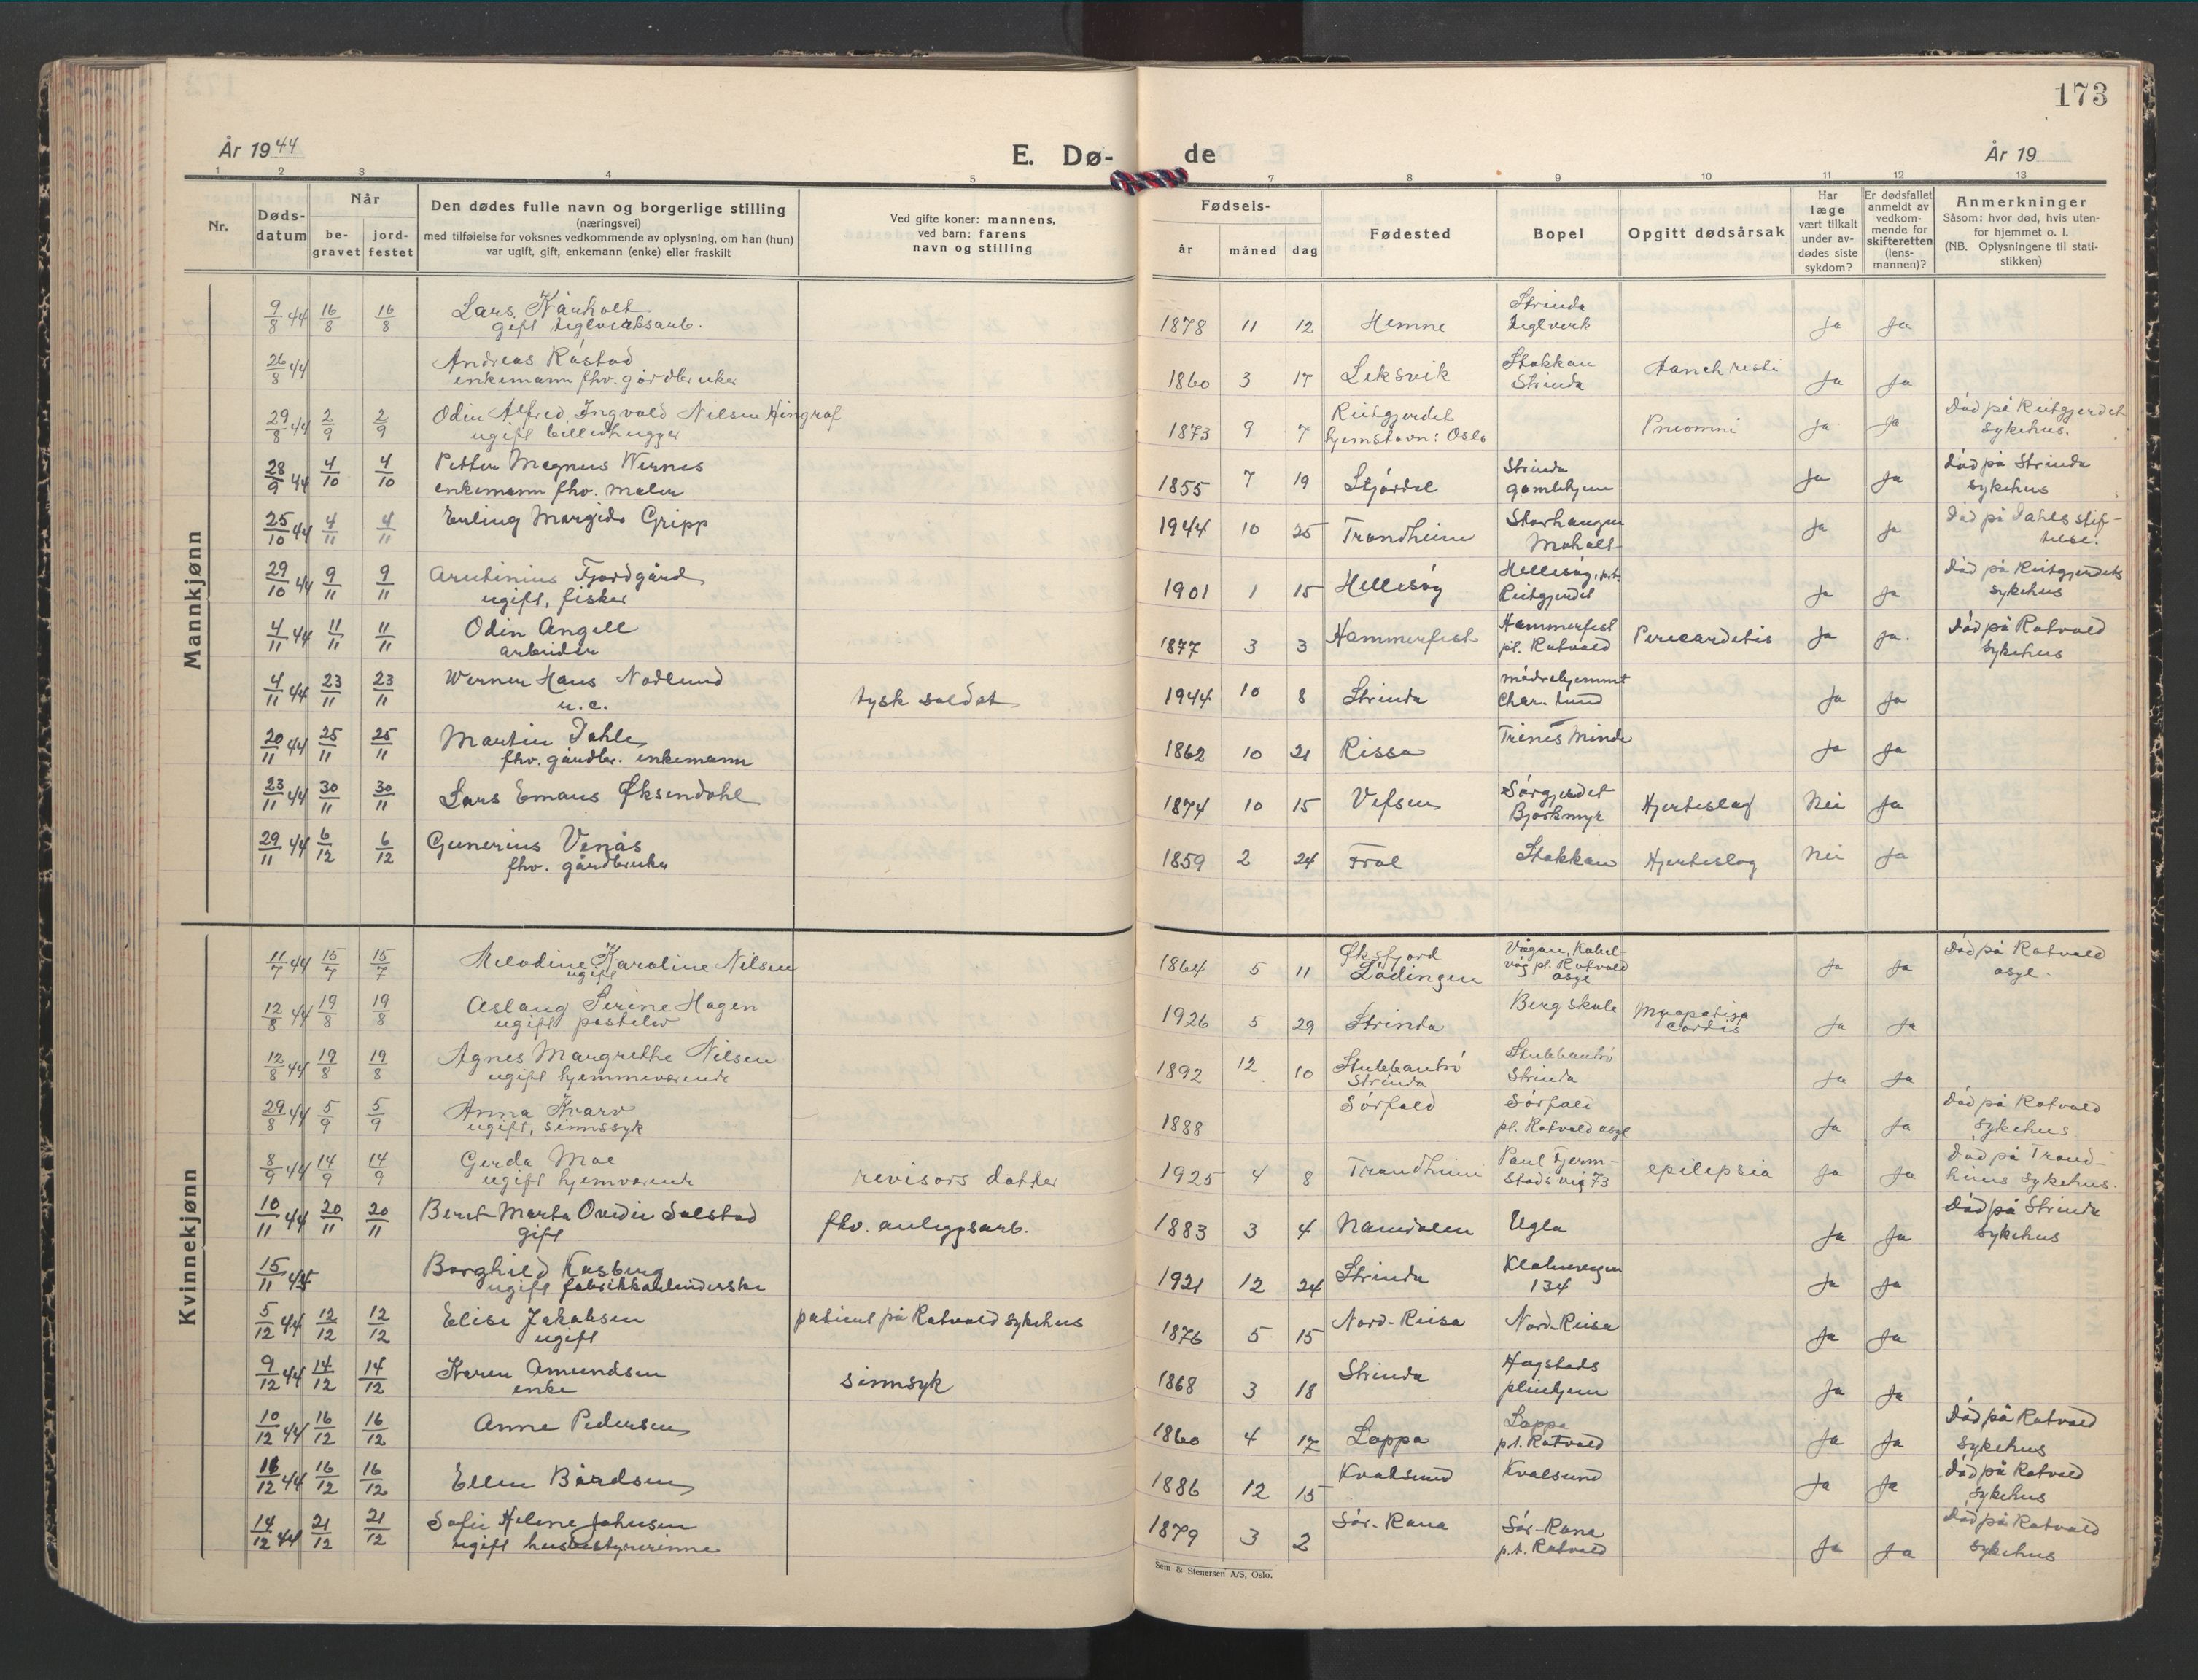 173
År 1944
E. Dø-
de
År 19
1 2 3 4 5 7 8 9 10 11 12 13
Nr.
Døds-
datum
Når
be-
gravet
jord-
festet
Den dødes fulle navn og borgerlige stilling
(næringsvei)
med tilføielse for voksnes vedkommende av oplysning, om han (hun)
var ugift, gift, enkemann (enke) eller fraskilt
Ved gifte koner: mannens,
ved barn: farens
navn og stilling
Fødsels-
år måned dag
Fødested
Bopel
Opgitt dødsårsak
Har
læge
vært tilkalt
under av-
dødes siste
sykdom?
Er dødsfallet
anmeldt av
vedkom-
mende for
skifteretten
(lens-
mannen)?
Anmerkninger
Såsom: hvor død, hvis uten-
for hjemmet o. l.
(NB. Oplysningene til stati-
stikken)
Mannkjønn
9/8 44 16/8 16/8 Lars Kårholt 1878 11 12 Hemne Strinda Ja Ja
gift teglverksarb. teglverk
26/8 44 Andreas Råstad 1860 3 17 Leksvik Stokkan Ja Ja
enkemann fhv. gårdbruker Strinda
29/8 44 2/9 2/9 Odin Alfred Ingvald Nilsen Hingraf 1873 9 7 Reitgjerdet Pneomni Ja Ja Död på Reitgjerdet
ugift billedhugger hjemstavn: Oslo sykehus.
28/9 44 4/10 4/10 Petter Magnus Wernes 1855 7 19 Stjørdal Strinda Ja Ja död på Strinda
enkemann fhv. maler gamlehjem sykehus
25/10 44 4/11 4/11 Erling Margido Gripp 1944 10 25 Trondheim Storhaugen Ja Ja Död på Dahls stif-
Moholt telse.
29/10 44 9/11 9/11 Arntinius Fjordgård 1901 1 15 Hellesöy Hellesöy, p.t. Ja Ja Död på Reitgjerdets
ugift, fisker Reitgjerdet sykehus
4/11 44 11/11 11/11 Odin Angell 1877 3 3 Hammerfest Hammerfest Pericardetis Ja Ja. Död på Rotvold
arbeider pl. Rotvold sykehus
4/11 44 23/11 23/11 Werner Hans Nodlund tysk soldat 1944 10 8 Strinda mödrehjemmet Ja Ja
u.e. Char. lund
20/11 44 25/11 25/11 Martin Dahle 1862 10 21 Rissa Trines Minde Ja Ja
fhv. gårdbr. enkemann
23/11 44 30/11 30/11 Lars Emaus Øksendahl 1874 10 15 Vefsen Sörgjerdet Hjerteslag Nei Ja
Bjørkmyr
29/11 44 6/12 6/12 Gunerius Venås 1859 2 24 Frol Stokkan Hjerteslag Nei Ja
fhv. gårdbruker
Kvinnekjønn
11/7 44 15/7 15/7 Melodine Karoline Nilsen 1864 5 11 Øksfjord Vågan, Kabel- Ja Ja Död på Rotvold
ugift Lödingen våg pl. Rotvold asyl.
asyl
12/8 44 19/8 19/8 Aslaug Serine Hagen 1926 5 29 Strinda Berg skole Myopatisja Ja Ja
ugift postelev cordis
12/8 44 19/8 19/8 Agnes Margrethe Nilsen 1892 12 10 Stubbantrö Stubbantrö Ja Ja
ugift hjemmeværende Strinda Strinda
29/8 44 5/9 5/9 Anna Kvarv 1888 Sörfold Sörfold Ja Ja Död på Rotvold
ugift, sinnssyk pl. Rotvold asyl sykehus
8/9 44 14/9 14/9 Gerda Moe revisors datter 1925 4 8 Trondheim Paul Fjerm- epilepsia Ja Ja Död på Trond-
ugift hjemværende stads vei 73 heims sykehus.
10/11 44 20/11 20/11 Beret Marta Ovidie Solstad fhv. anleggsarb. 1883 3 4 Namdalen Ugla Ja Ja Död på Strinda
gift sykehus
15/11 Borghild Kasberg 1921 12 24 Strinda Ja Ja
ugift fabrikkarbeiderske 134
5/12 44 12/12 12/12 Elise Jakobsen patient på Rotvold sykehus 1876 5 15 Nord-Reisa Nord-Reisa Ja Ja
ugift
9/12 44 14/12 14/12 Karen Amundsen sinnsyk 1868 3 18 Strinda Hagstads Ja Ja
enke pleiehjem
10/12 44 16/12 16/12 Anne Pedersen 1860 4 17 Loppa Loppa Ja Ja Död på Rotvold
p.t. Rotvold sykehus
/12 44 16/12 16/12 Ellen Bårdsen 1886 12 15 Kvalsund Kvalsund Ja Ja död på Rotvold
sykehus
14/12 44 21/12 21/12 Sofie Helene Johnsen 1879 3 2 Sør-Rana Sør-Rana Ja Ja död på Rotvold
ugift husbestyrerinne p.t. Rotvold sykehus
Sem & Stenersen A/S, Oslo.